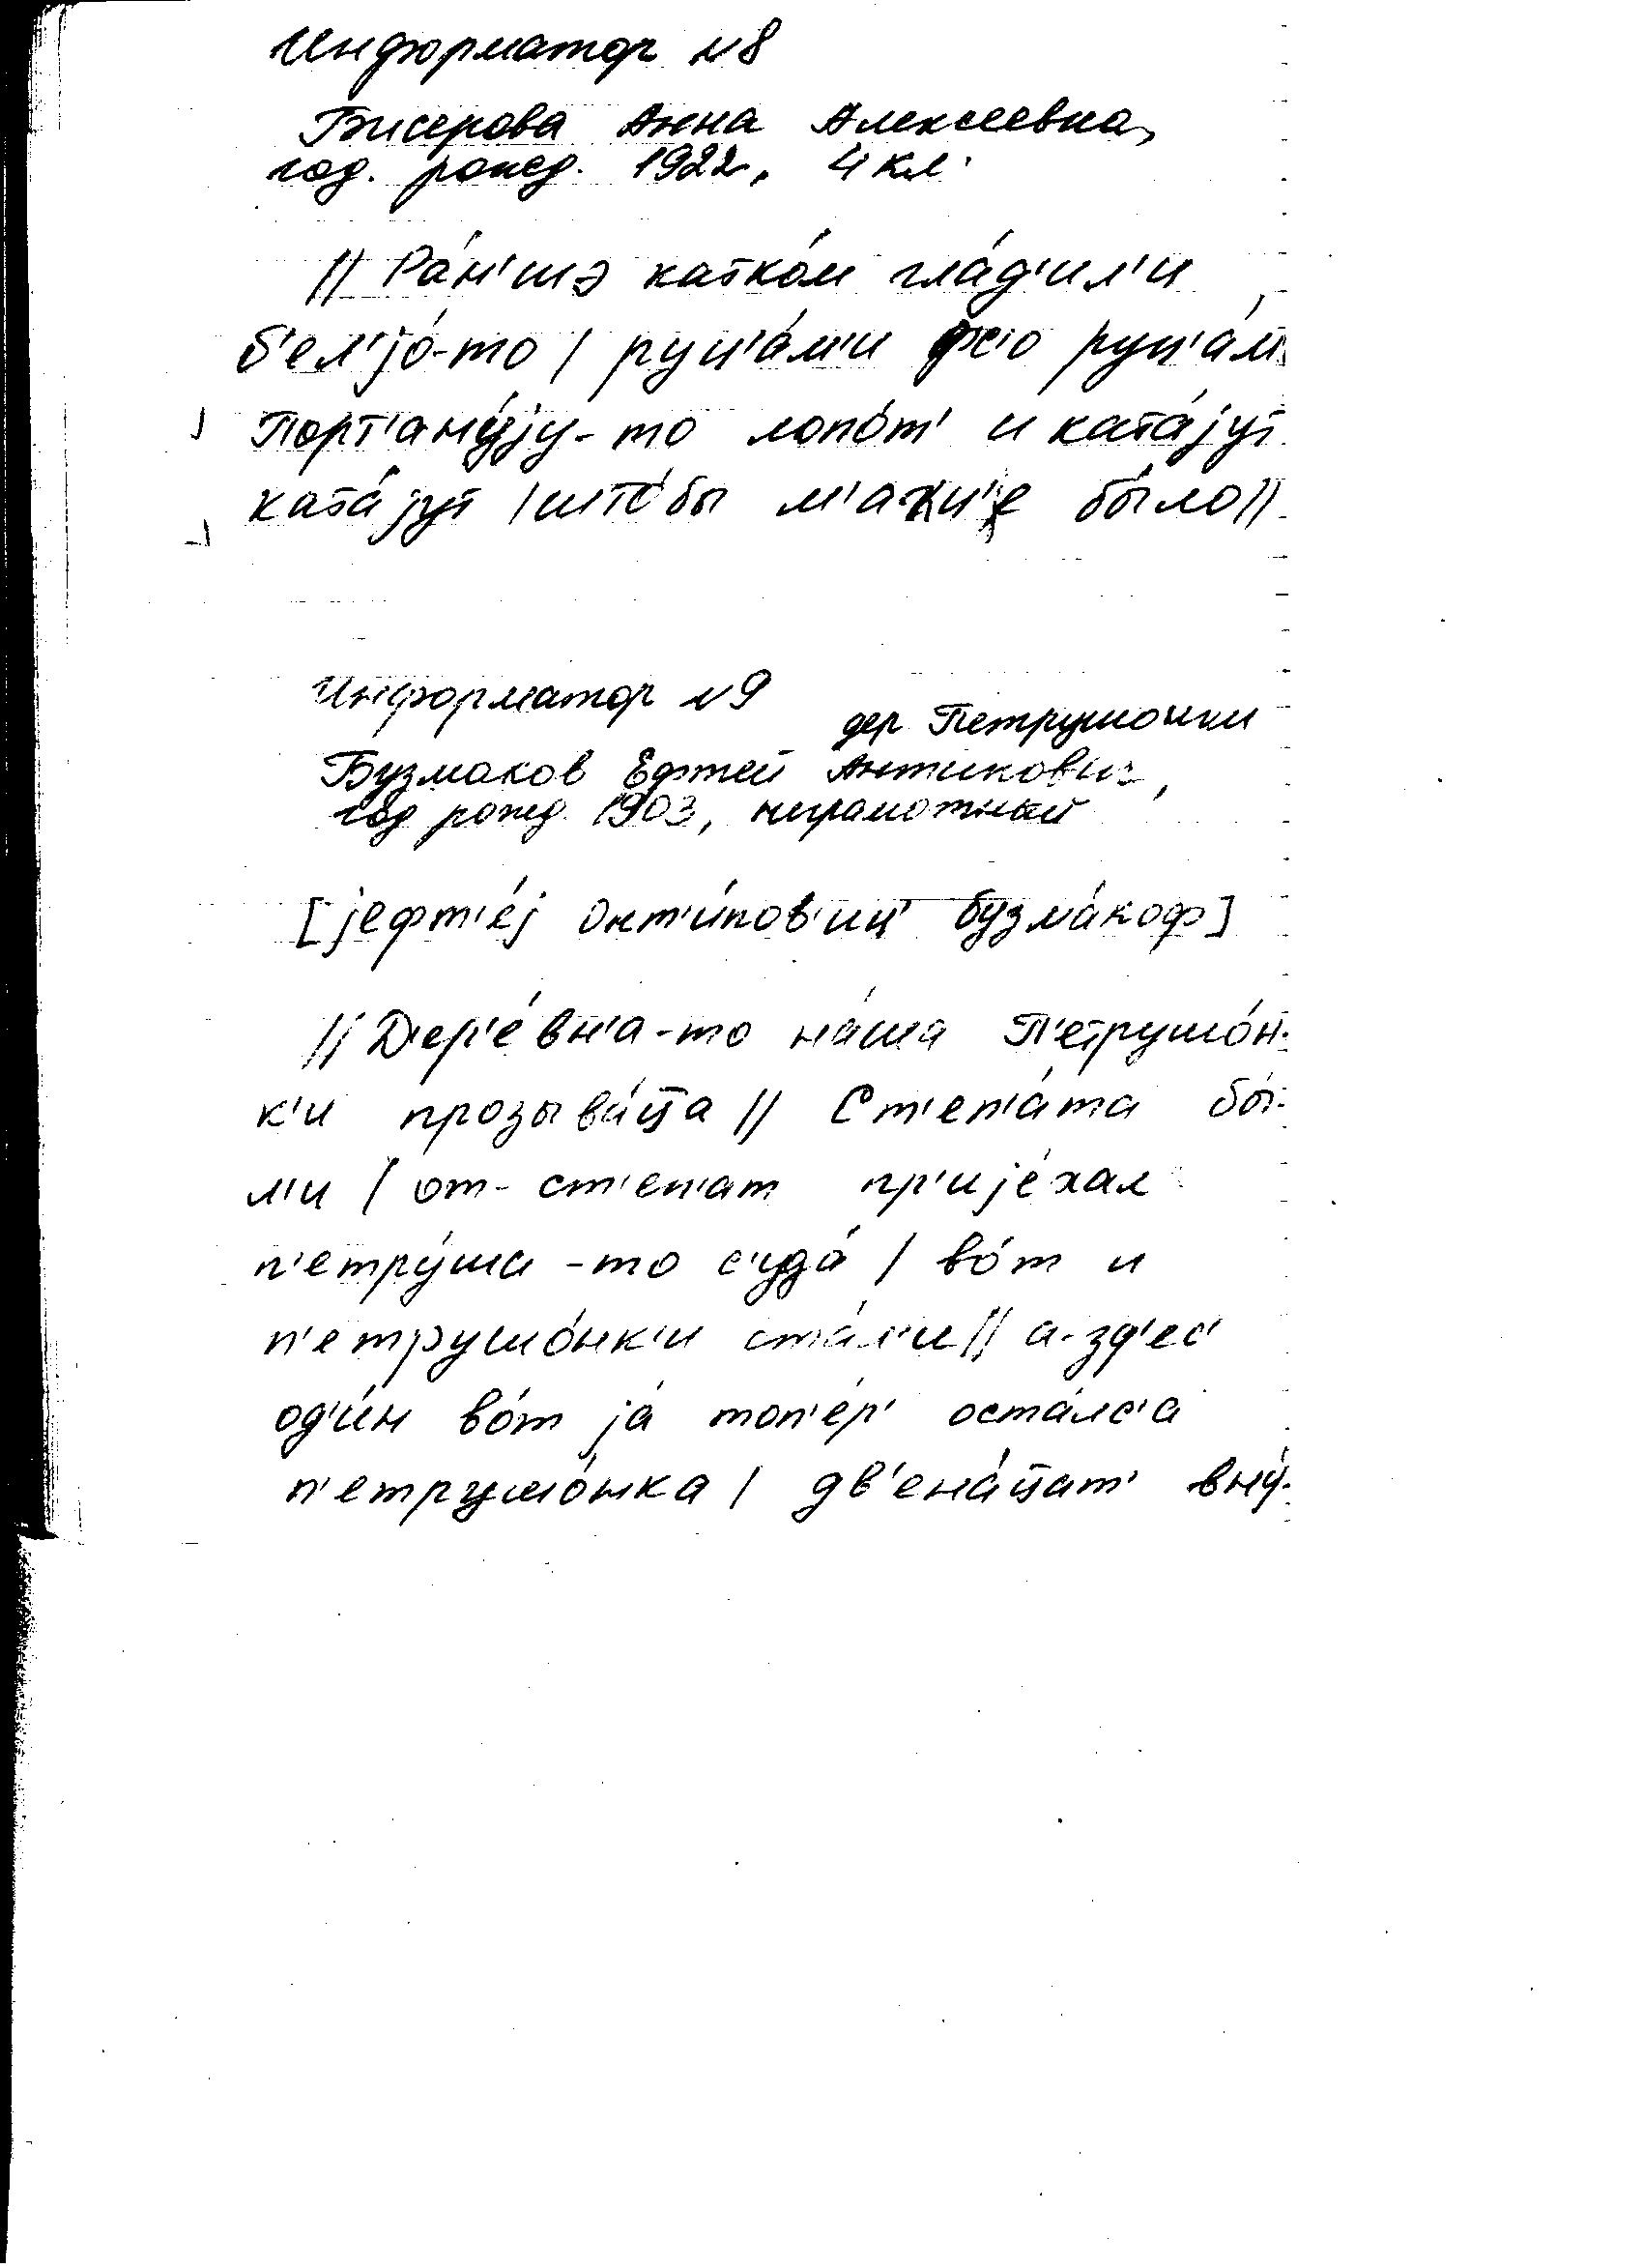 Информатор №8
Бисерова Анна Алексеевна,
год. рожд. 1922, 4 кл.
// Ра́н'шэ катко́м гла́д'ил'и
б'ел'jо́-то / руц'а́м'и фс'о руц'а́м
Порт'ану́jу-то лопо́т' и ката́jут
ката́jут / што́бы м'а было //
Информатор №9
дер Петрушонки
Бузмаков Ефтей Антипович,
год рожд. 1903, неграмотный
[jефт'е́j онт'и́пов'иц' бузма́коф]
// Д'ер'е́вн'а-то на́ша П'етрушо́н-
к'и прозыва́ц̅а // Ст'еп'а́та бы́-
л'и / от-ст'еп'ат пр'иjе́хал
п'етру́ша-то с'уда́ / во́т и
п'етрушо́нк'и ста́л'и // а-зд'ес'
од'и́н во́т jа́ топ'е́р' оста́лс'а
п'етрушо́нка / дв'ена́ц̅ат' вну́-